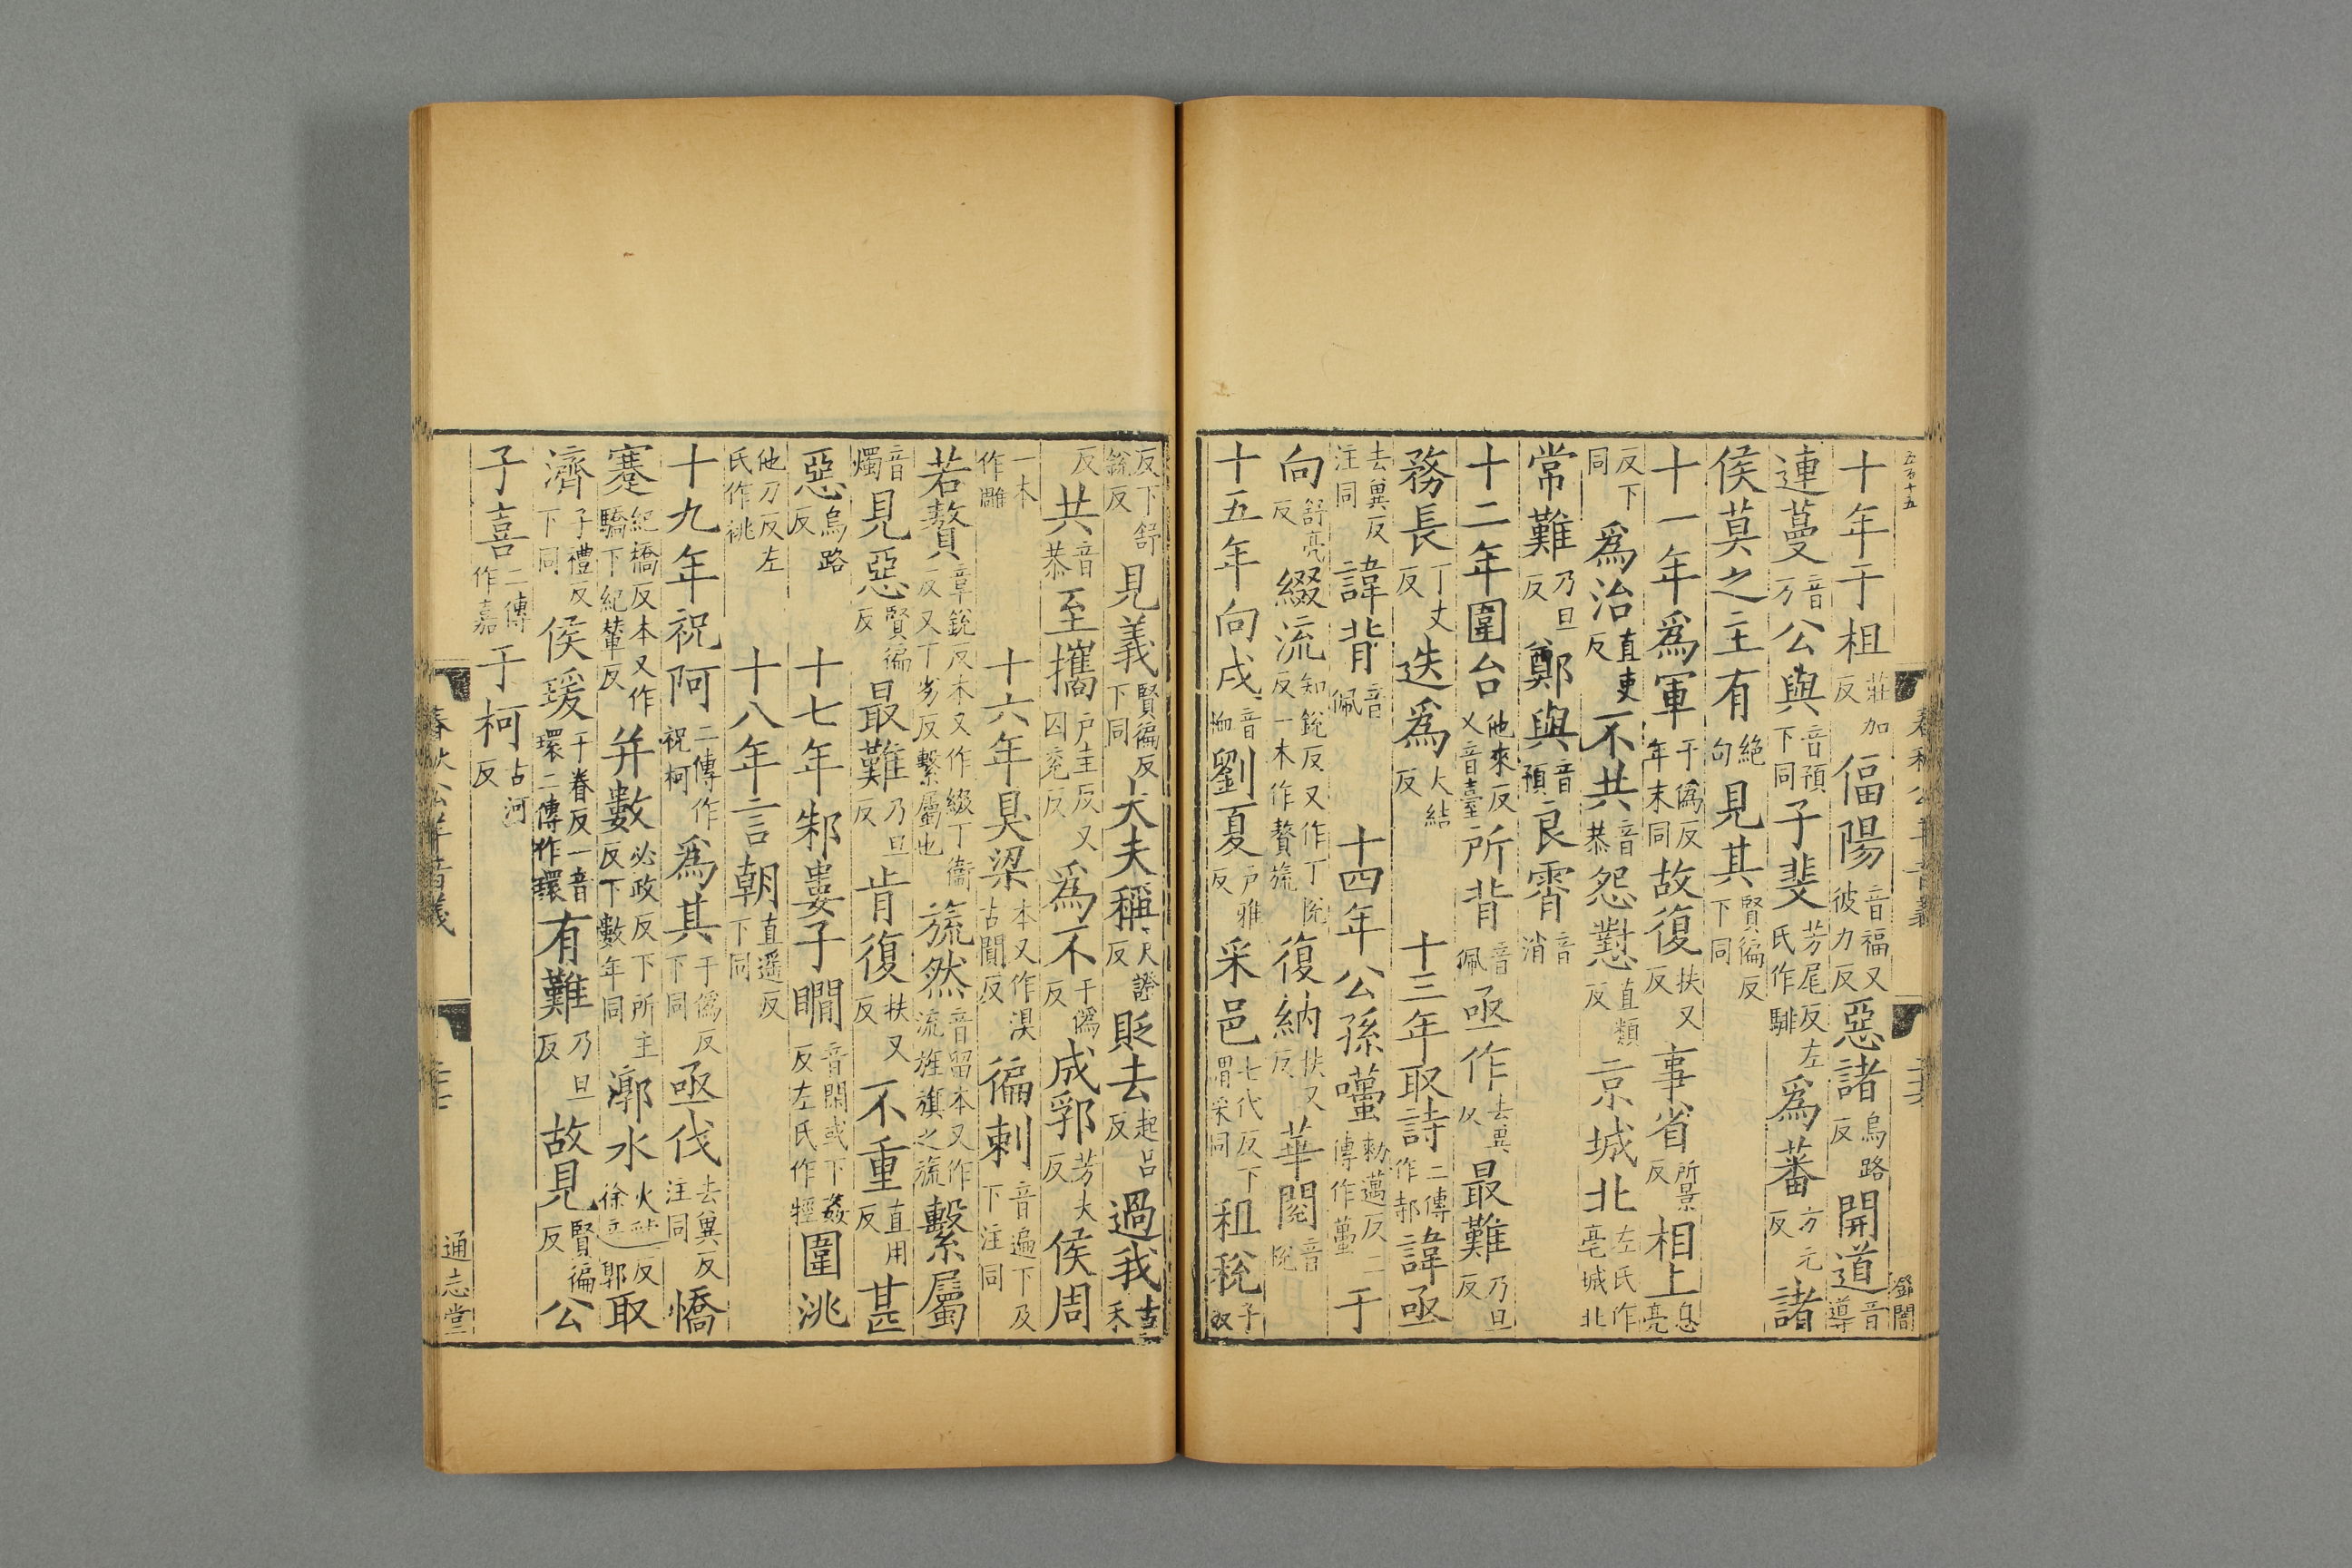 十年于柤莊加反偪陽音福又彼力反惡諸烏路反開道音導
連蔓音万公與音預下同子斐芳尾反左氏作騑爲蕃方元反諸
侯莫之主有絶句見其賢徧反下同
十一年爲軍于僞反年末同故復扶又反事省所景反相上息亮
反下同爲治直吏反不共音恭怨懟直類反京城北左氏作亳城北
常難乃旦反鄭與音預良霄音消
十二年圍台他來反又音臺所背音佩亟作去異反最難乃旦反
務長丁丈反迭爲大結反十三年取詩二傳作邿諱亟
去異反注同諱背音佩十四年公孫囆勑邁反二傳作蠆于
向舒亮反綴流知銳反又作丁悅反一本作贅旒復納扶又反華閱音悅
十五年向戌音恤劉夏戶雅反采邑七代反下謂采同租稅子奴
反下舒銳反見義賢徧反下同大夫稱尺證反貶去起呂反過我古禾
反共音恭至攜戶圭反又囚兖反爲不于僞反成郛芳夫反侯周
一本作雕十六年狊梁本又作湨古闃反徧刺音遍下及下注同
若贅章銳反本又作綴丁衞反又丁劣反繫屬也旒然音留本又作流旌旗之旒繫屬
音燭見惡賢徧反最難乃旦反肯復扶又反不重直用反甚
惡烏路反十七年邾婁子瞷音閑或下姦反左氏作牼圍洮
他刀反左氏作桃十八年言朝直遥反下同
十九年祝阿二傳作祝柯爲其于僞反下同亟伐去異反注同憍
蹇紀橋反本又作驕下紀輦反并數必政反下所主反下數年同漷水火虢反徐音郭取
濟子禮反下同侯瑗于眷反一音環二傳作環有難乃旦反故見賢徧反公
子喜二傳作嘉于柯古河反
通志堂